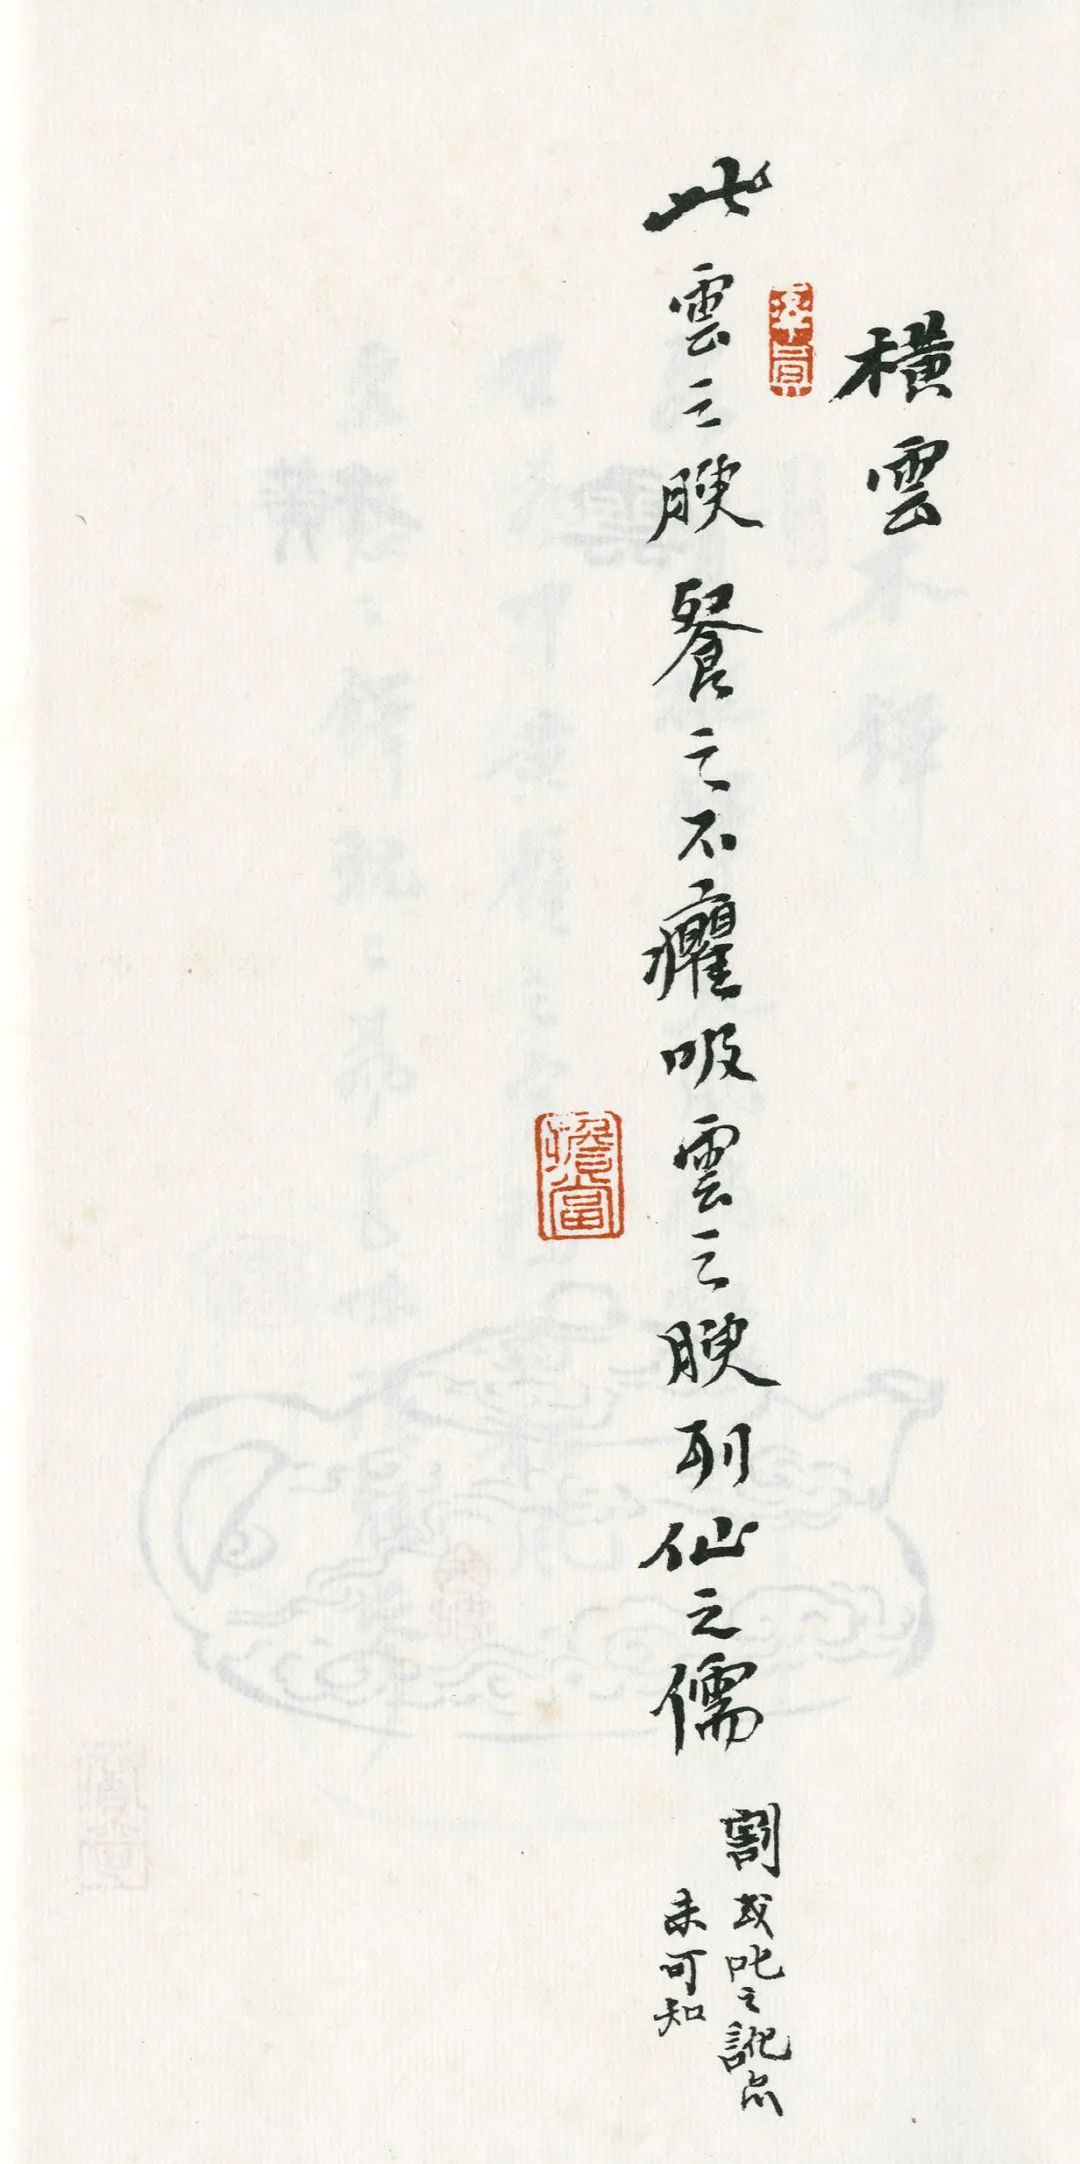 橫雲
此雲之腴餐之不癯吸雲之腴列仙之儒
割或叱之訛亦
未可知
擔當